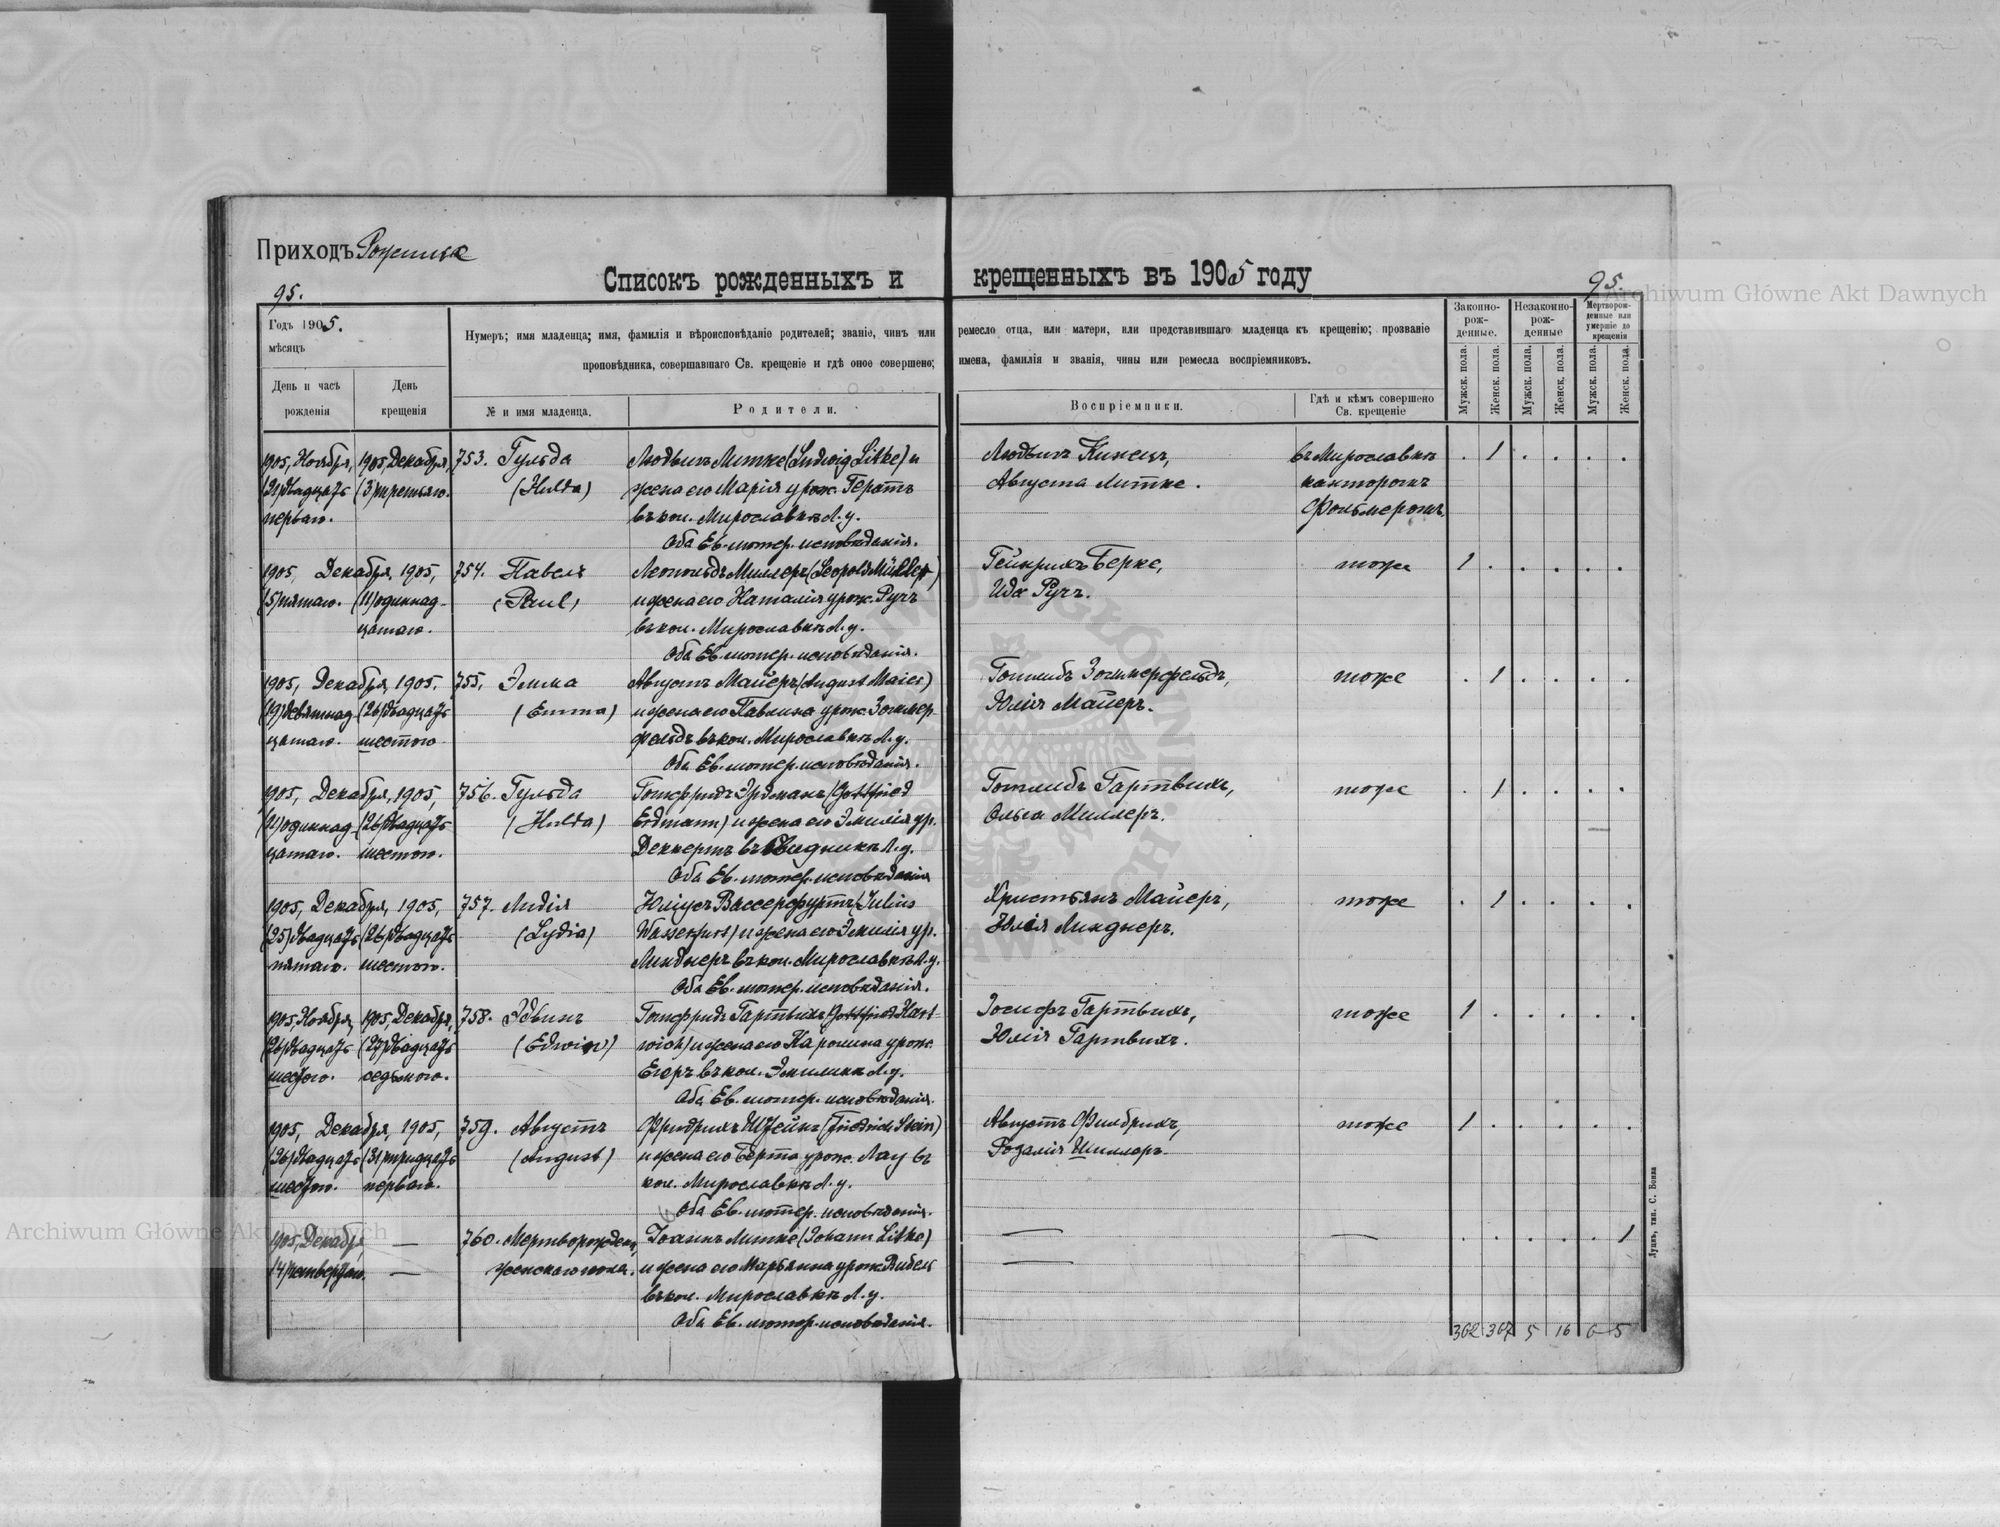 Приходъ Рожище
Списокъ рожденныхъ и крещенныхъ въ 1905 году
95.
95.
Archiwum Główne Akt Dawnych
Годъ 1905.
мѣсяцъ
День и часъ рожденія
День крещенія
Нумеръ; имя младенца; имя, фамилія и вѣроисповѣданіе родителей; званіе, чинъ или ремесло отца, или матери, или представившаго младенца къ крещенію; прозваніе
проповѣдника, совершавшаго Св. крещеніе и гдѣ оное совершено; имена, фамилія и званія, чины или ремесла воспріемниковъ.
№ и имя младенца.
Родители.
Воспріемники.
Гдѣ и кѣмъ совершено Св. крещеніе
Законно-рож-денные.
Незаконно-рож-денные
Мертворож-денные или умершіе до крещенія
Мужск. пола.
Женск. пола.
Мужск. пола.
Женск. пола.
Мужск. пола.
Женск. пола.
1905, Ноября, 1905, Декабря, 753. Гульда Людвигъ Литке (Ludwig Litke) и Августа Литке.
(21) двадцать (3) третьяго. (Hulda) жена его Марія урож. Гератъ
перваго. въ кол. Мирославкѣ Л. у.
Оба Ев.-лютер. исповѣданія.
Людвигъ
въ Мирославкѣ
канторомъ
Фольмеромъ.
. 1 . . . .
1905, Декабря, 1905, 754. Павелъ Леопольдъ Миллеръ (Leopold Müller) Гейнрихъ Берке, тоже 1 . . . . .
(5) пятаго. (11) одиннад- (Paul) и жена его Наталія урож. Ручъ Ида Ручъ.
цатаго. въ кол. Мирославкѣ Л. у.
Оба Ев.-лютер. исповѣданія.
1905, Декабря, 1905, 755. Эмма Августъ Майеръ (August Maier) Готлибъ Зоммерфельдъ, тоже . 1 . . . .
(19) девятнад- (26) двадцать (Emma) и жена его Павлина урож. Зоммер- Юлія Майеръ.
цатаго. шестого фельдъ въ кол. Мирославкѣ Л. у.
Оба Ев.-лютер. исповѣданія.
1905, Декабря, 1905, 756. Гульда Готфридъ Эрдманъ (Gottfried Готлибъ Гартвихъ, тоже . 1 . . . .
одиннад- (26) двадцать (Hulda) Erdmann) и жена его Эмилія ур. Ольга Миллеръ.
цатаго. шестого. Деккертъ въ Л. у.
Оба Ев.-лютер. исповѣданія
1905, Декабря, 1905, 757. Лидія Юліусъ Вассерфуртъ (Julius Христьянъ Майеръ, тоже . 1 . . . .
(25) двадцать (26) двадцать (Lydia) Wasserfurt) и жена его Эмилія ур. Юлія Линднеръ.
пятаго. шестого. Линднеръ въ кол. Мирославкѣ Л. у.
Оба Ев.-лютер. исповѣданія.
1905, Ноября, 1905, Декабря, 758. Эдвинъ Готфридъ Гартвихъ (Gottfried Hart- Іосифъ Гартвихъ, тоже 1 . . . . .
(26) двадцать (27) двадцать (Edwin) wich) и жена его Каролина урож. Юлія Гартвихъ.
шестого. седьмого. Егеръ въ кол. Эмилинѣ Л. у.
Оба Ев.-лютер. исповѣданія.
1905, Декабря, 1905, 759. Августъ Фридрихъ Штейнъ (Friedrich Stein) Августъ Фильбрихъ, тоже 1 . . . . .
(26) двадцать (31) тридцать (August) и жена его Берта урож. Лау въ Розалія Шиллеръ.
шестого. перваго. кол. Мирославкѣ Л. у.
Оба Ев.-лютер. исповѣданія.
1905, Декабр. — 760. Мертворожден. Іоаннъ Литке (Johann Litke) — — . . . . . 1
(4) четвертаго. — женскаго пола. и жена его Марьянна урож. —
въ кол. Мирославкѣ Л. у.
Оба Ев.-лютер. исповѣданія.
362 367 5 16 6 5
Луцкъ, тип. С. Бокка
Archiwum Główne Akt Dawnych